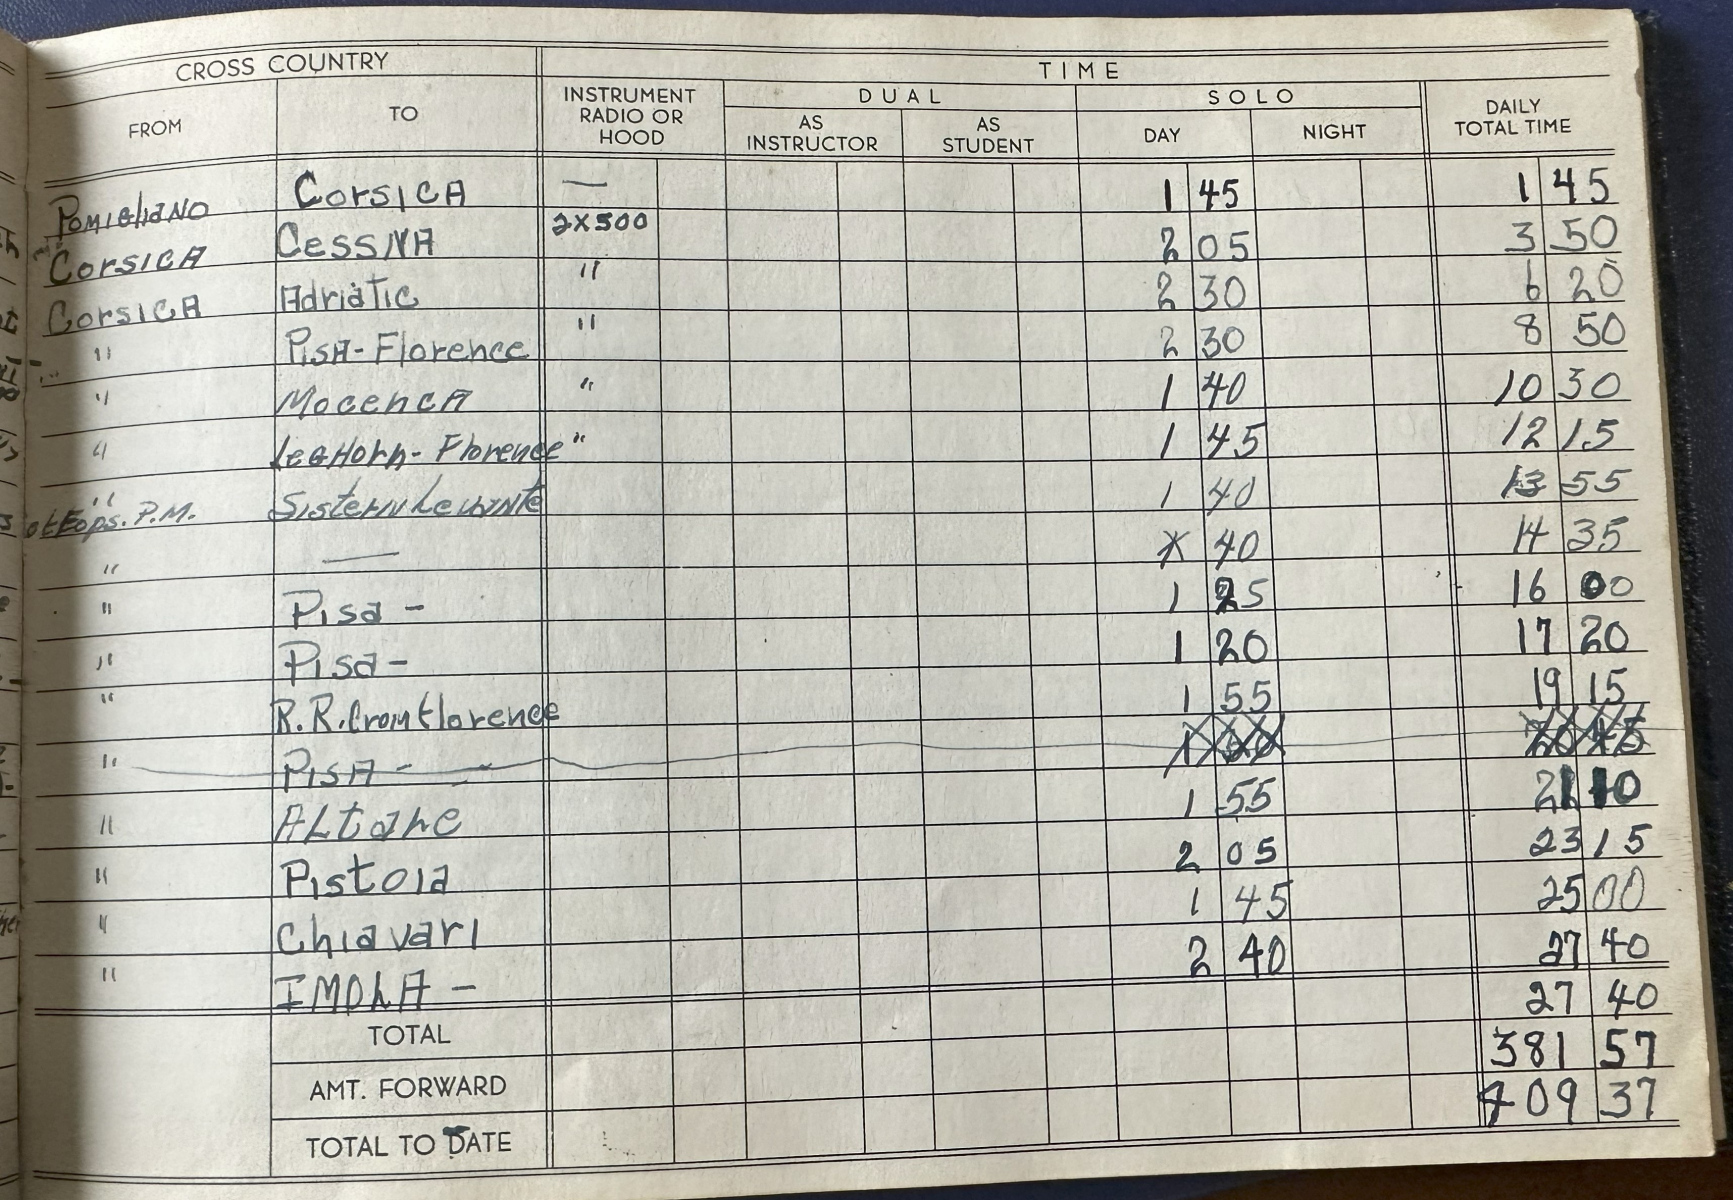 CROSS COUNTRY TIME
FROM TO INSTRUMENT RADIO OR HOOD DUAL SOLO DAILY TOTAL TIME
AS INSTRUCTOR AS STUDENT DAY NIGHT
POMIGliANO CorsICA — 1 45 1 45
CorsICA CessNA 2X500 2 05 3 50
CorsICA Adriatic " 2 30 6 20
" PISA-Florence " 2 30 8 50
" MocencA " 1 40 10 30
" LeGHorn-Florence " 1 45 12 15
" 1 40 13 55
P.M. — 40 14 35
" Pisa - 1 25 16 00
" Pisa - 1 20 17 20
" R.R. Florence 1 55 19 15
" PISA -
" ALtare 1 55 21 10
" Pistoia 2 05 23 15
" Chiavari 1 45 25 00
" IMOLA - 2 40 27 40
TOTAL 27 40
AMT. FORWARD 381 57
TOTAL TO DATE 409 37